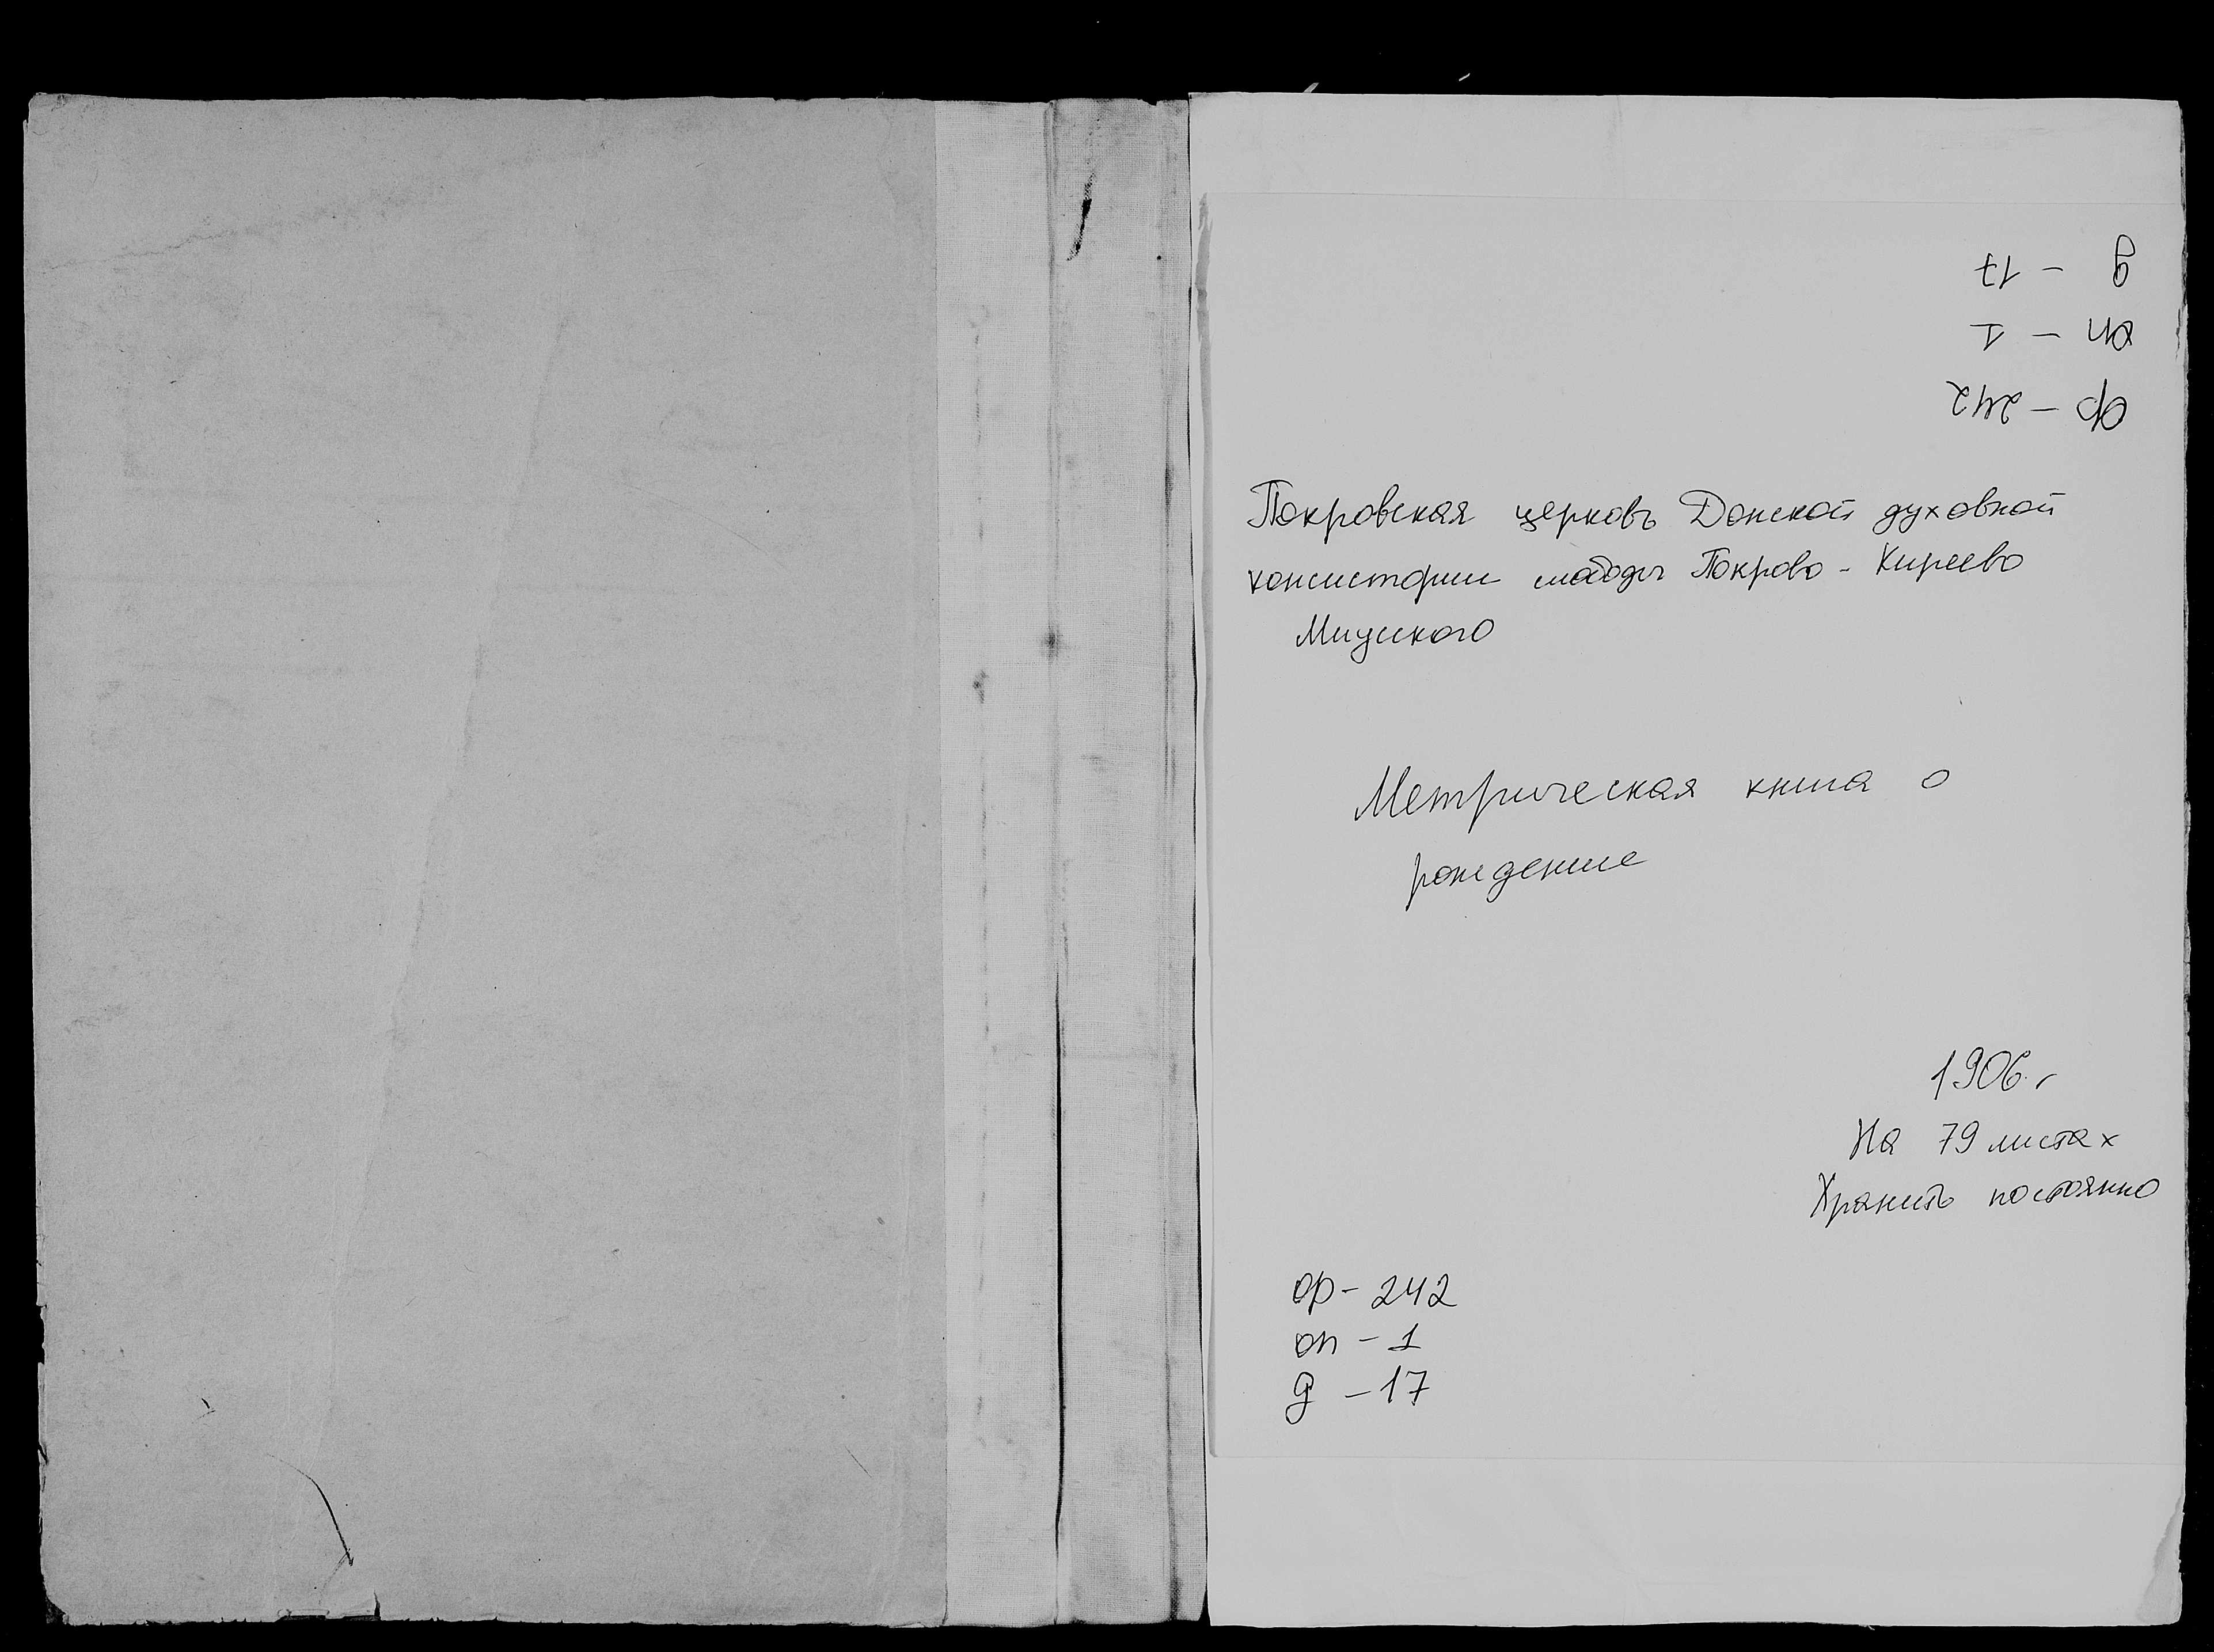 ф - 242
оп - 1
д - 17
Покровская церковь Донской духовной
консистории слободы Покрово - Киреево
Миуского
Метрическая книга о
рождение
1906 г
На 79 листах
Хранить постоянно
ф - 242
оп - 1
д - 17